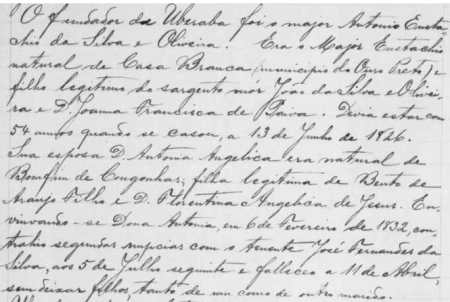 O fundador de Uberaba foi o major Antonio Eusta-
chio da Silva e Oliveira. Era o Major Eustachio
natural de Casa Branca (municipio do Ouro Preto) e
filho legitimo do sargento mór João da Silva e Olivei-
ra e D. Joanna Francisca de Paiva. Devia estar com
54 annos quando se casou, a 13 de Junho de 1826.
Sua esposa D. Antonia Angelica era natural de
Bomfim de Congonhas; filha legitima de Bento de
Araujo Filho e D. Florentina Angelica de Jesus. En-
viuvando-se Dona Antonia, em 6 de Fevereiro de 1832, con-
trahio segundas nupcias com o tenente José Fernandes da
Silva, aos 5 de Julho seguinte e falleceo a 11 de Abril,
sem deixar filhos, tanto de um como de outro marido.